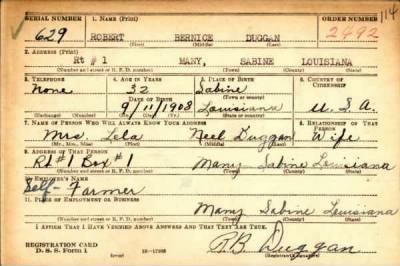 SERIAL NUMBER 1. NAME (Print) ORDER NUMBER 114
629 ROBERT BERNICE DUGGAN 2492
(First) (Middle) (Last)
2. ADDRESS (Print)
Rt # 1 MANY, SABINE LOUISIANA
(Number and street or R. F. D. number) (Town) (County) (State)
3. TELEPHONE 4. AGE IN YEARS 5. PLACE OF BIRTH 6. COUNTRY OF CITIZENSHIP
None 32 Sabine
DATE OF BIRTH (Town or county)
9/11/1908 Louisiana U.S.A.
(Exchange) (Number) (Mo.) (Day) (Yr.) (State or country)
7. NAME OF PERSON WHO WILL ALWAYS KNOW YOUR ADDRESS 8. RELATIONSHIP OF THAT PERSON
Mrs. Lela Neel Duggan Wife
(Mr., Mrs., Miss) (First) (Middle) (Last)
9. ADDRESS OF THAT PERSON
Rt #1 Box #1 Many Sabine Louisiana
(Number and street or R. F. D. number) (Town) (County) (State)
10. EMPLOYER'S NAME
Self- Farmer
11. PLACE OF EMPLOYMENT OR BUSINESS
Many Sabine Louisiana
(Number and street or R. F. D. number) (Town) (County) (State)
I AFFIRM THAT I HAVE VERIFIED ABOVE ANSWERS AND THAT THEY ARE TRUE.
REGISTRATION CARD
D. S. S. Form 1 R B Duggan
(Registrant's signature)